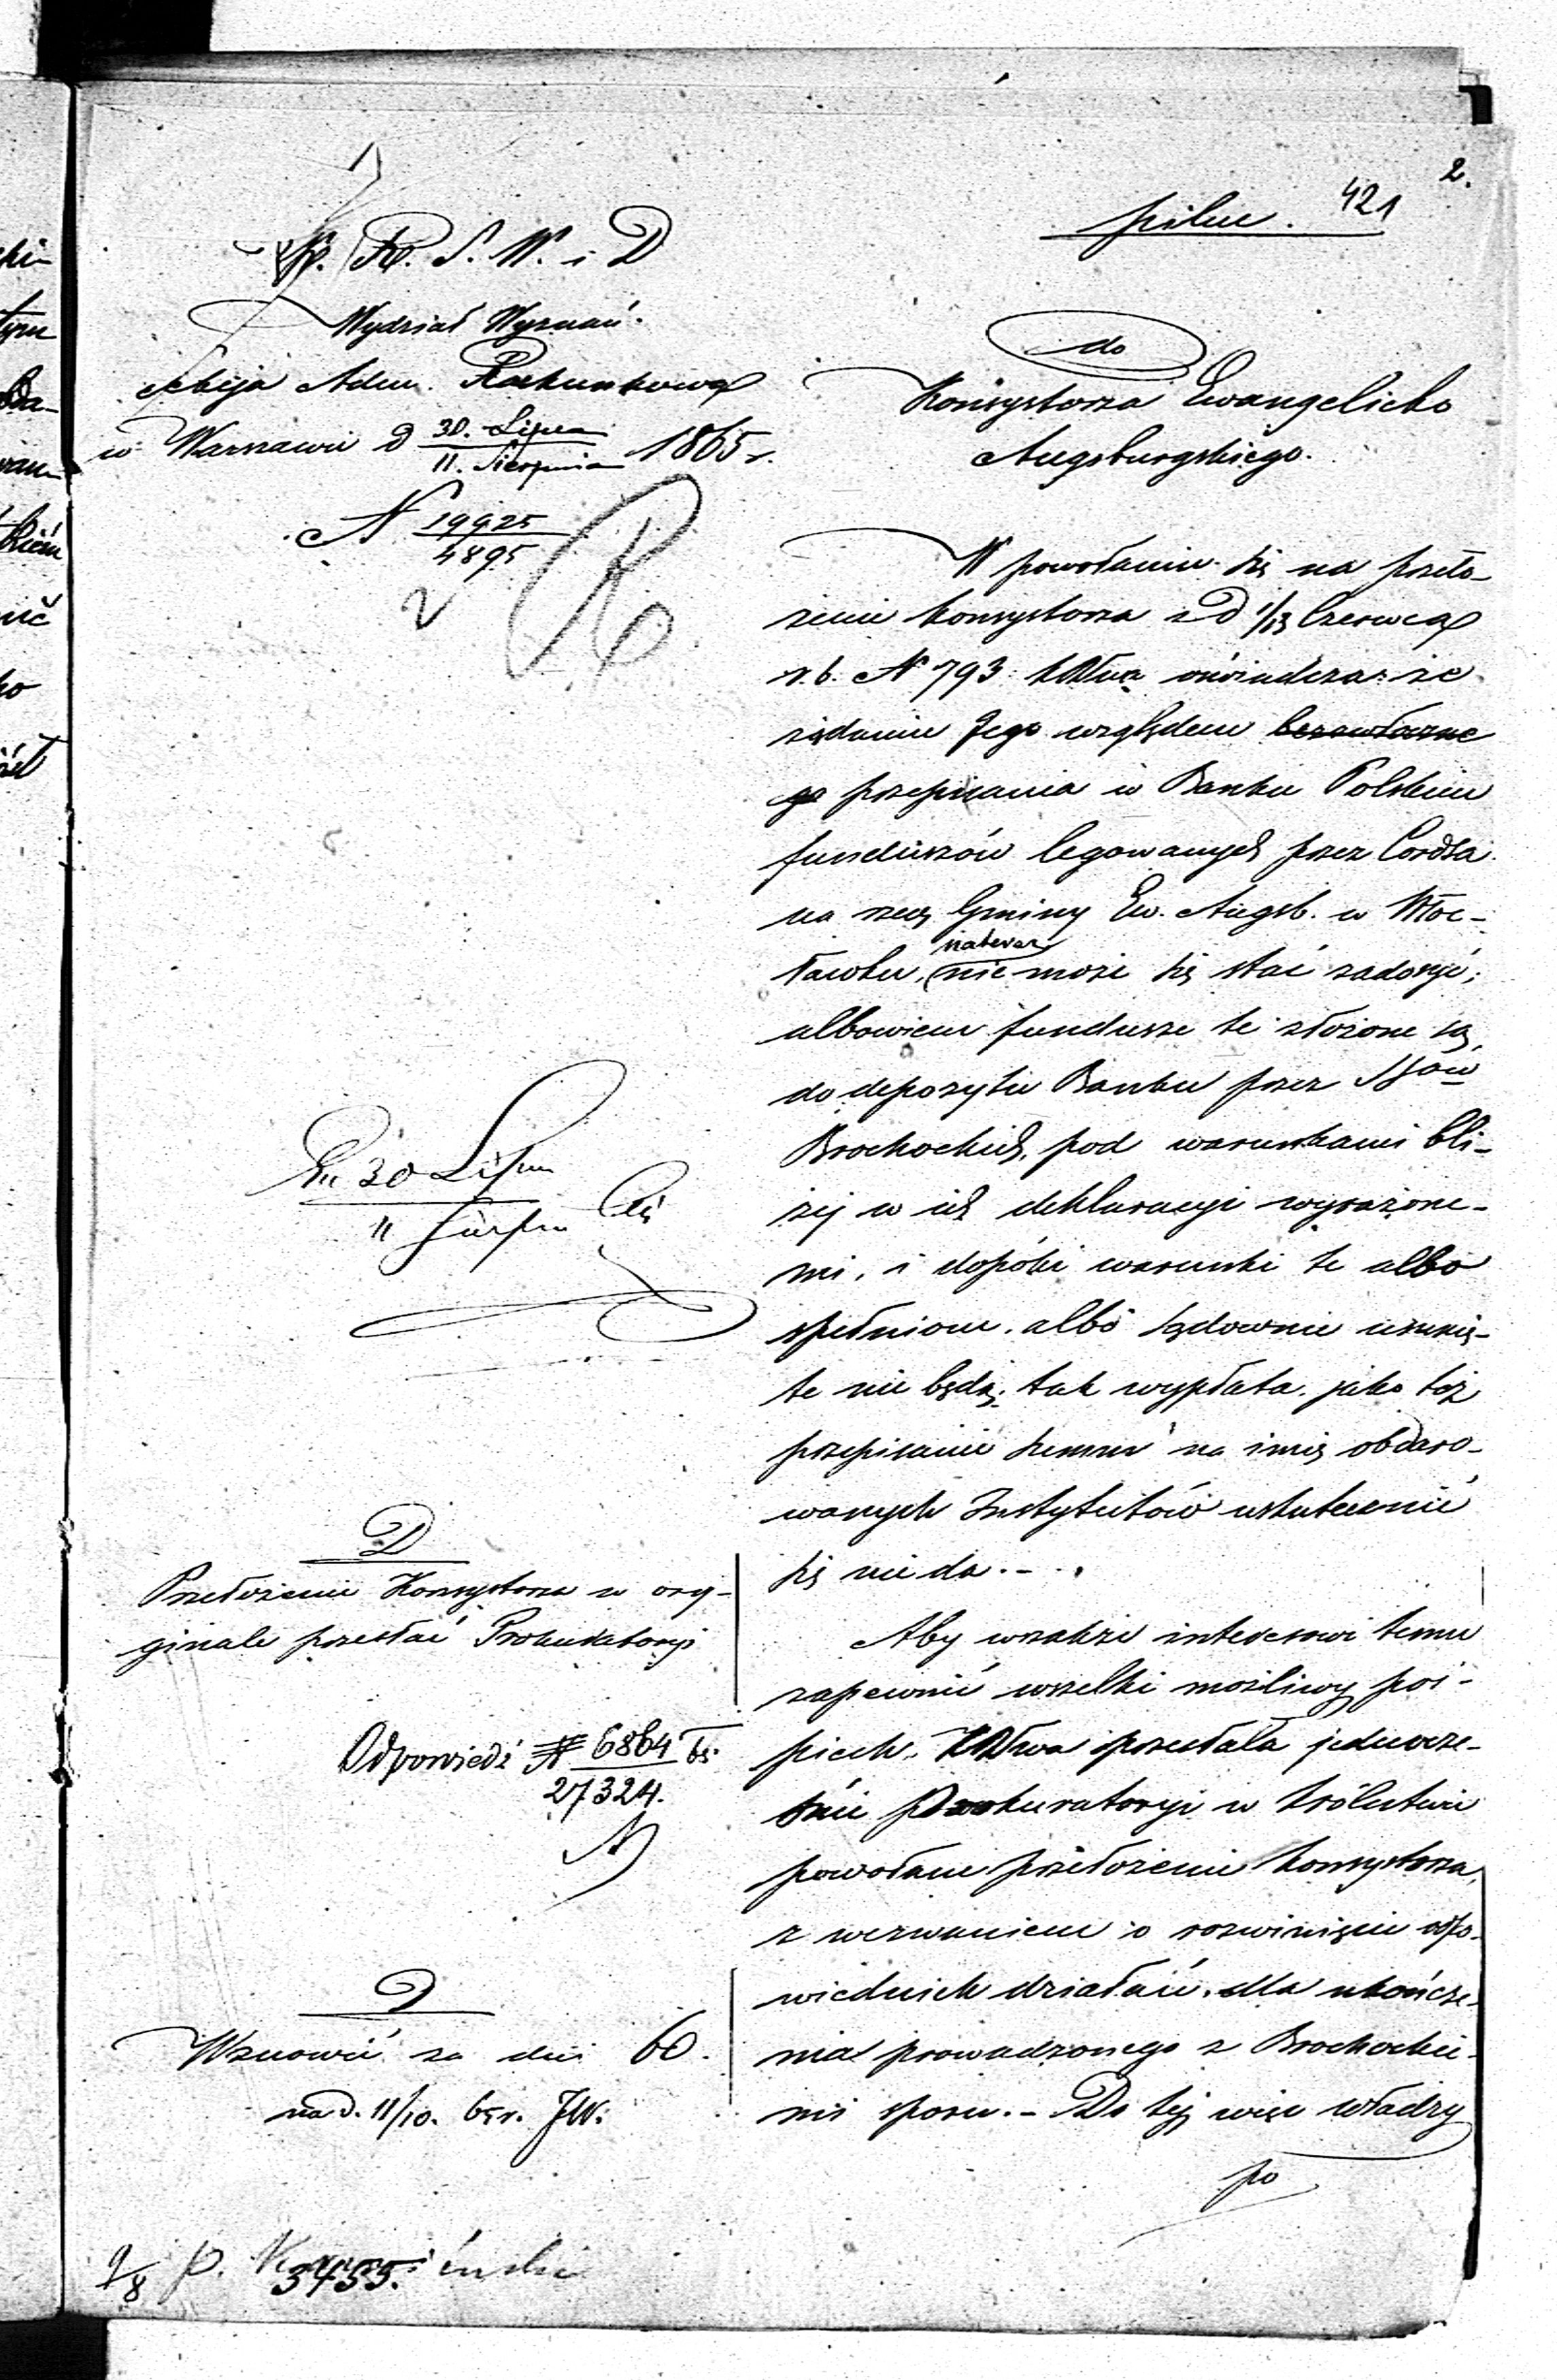 2.
421
pilne.
K. R. S. W. i D
Wydział Wyznań.
Sekcyja Adm. Rachunkowa
w Warszawie d 30. Lipca / 11. Sierpnia 1865 r.
N 19925 / 4895
do
Konsystorza Ewangelicko
Augsburgskiego.
W powołaniu się na przeło-
żenie Konsystorza z D 1/13 Czerwca
r. b. N 793 oświadcza: że
żądaniu Jego względem bezzwłoczne
go przepisania w Banku Polskim
funduszów legowanych przez Cordsa
na rzecz Gminy Ew. Augsb. w Włoc-
ławku, nateraz nie może się stać zadosyć;
albowiem fundusze te złożone są
do depozytu Banku przez SSów
Brochockich, pod warunkami bli-
żej w ich deklaracyi wyrażone-
mi, i dopóki warunki te albo
spełnione, albo sądownie usunię-
te nie będą, tak wypłata, jako też
przepisanie summ na imię obdaro-
wanych Instytutów uskutecznić
się nie da. -
Aby wszakże interesowi temu
zapewnić wszelki możliwy poś-
piech, przesłała jednocze-
śnie Prokuratoryi w Królestwie
powołane przełożenie Konsystorza,
z wezwaniem o rozwinięcie odpo-
wiednich działań, dla ukończe-
nia prowadzonego z Brochockie-
mi sporu. - Do tej więc władzy
po
30 Lipca
11 Sierpn
D
Przełożenie Konsystorza w ory-
ginale przesłać Prokuratoryi
Odpowiedź N 6864 / 27324. 65
D
Wznowić za dni 60.
na d. 11/10. 65 r. JW.
9/8 p.
3455.